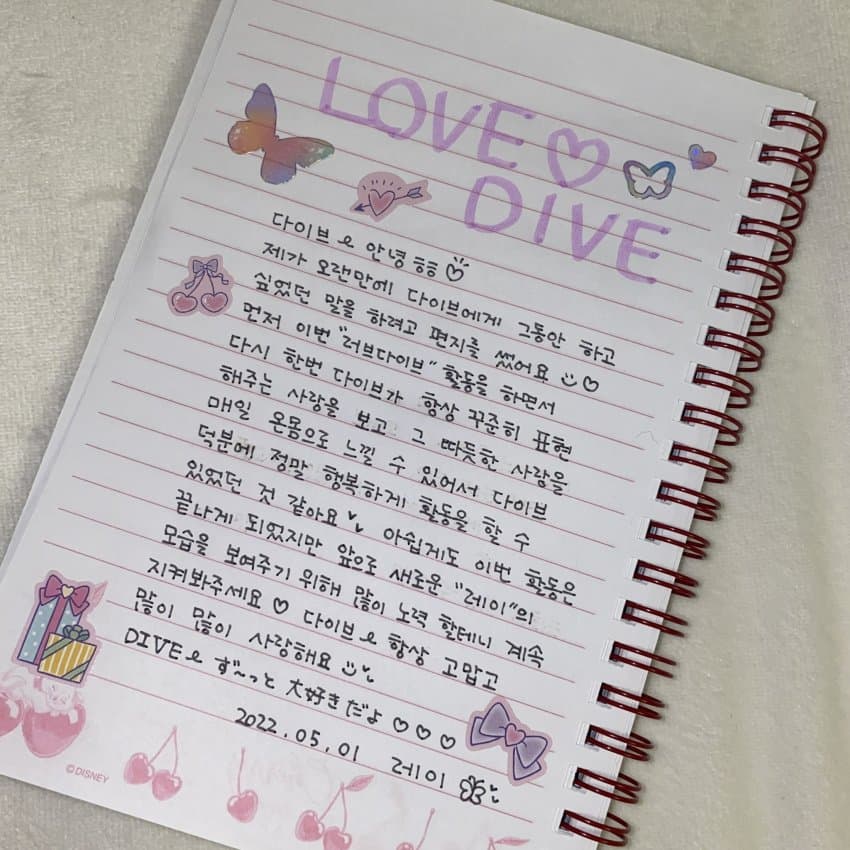 LOVE♡
DIVE
다이브ㅇ 안녕ㅎㅎ♡
제가 오랜만에 다이브에게 그동안 하고
싶었던 말을 하려고 편지를 썼어요 ♡
먼저 이번 "러브다이브" 활동을 하면서
다시 한번 다이브가 항상 꾸준히 표현
해주는 사랑을 보고 그 따듯한 사랑을
매일 온몸으로 느낄 수 있어서 다이브
덕분에 정말 행복하게 활동을 할 수
있었던 것 같아요 아쉽게도 이번 활동은
끝나게 되었지만 앞으로 새로운 "레이"의
모습을 보여주기 위해 많이 노력 할테니 계속
지켜봐주세요 ♡ 다이브ㅇ 항상 고맙고
많이 많이 사랑해요
DIVEㅇ ず~っと 大好きだよ ♡♡♡
2022.05.01 레이
©DISNEY